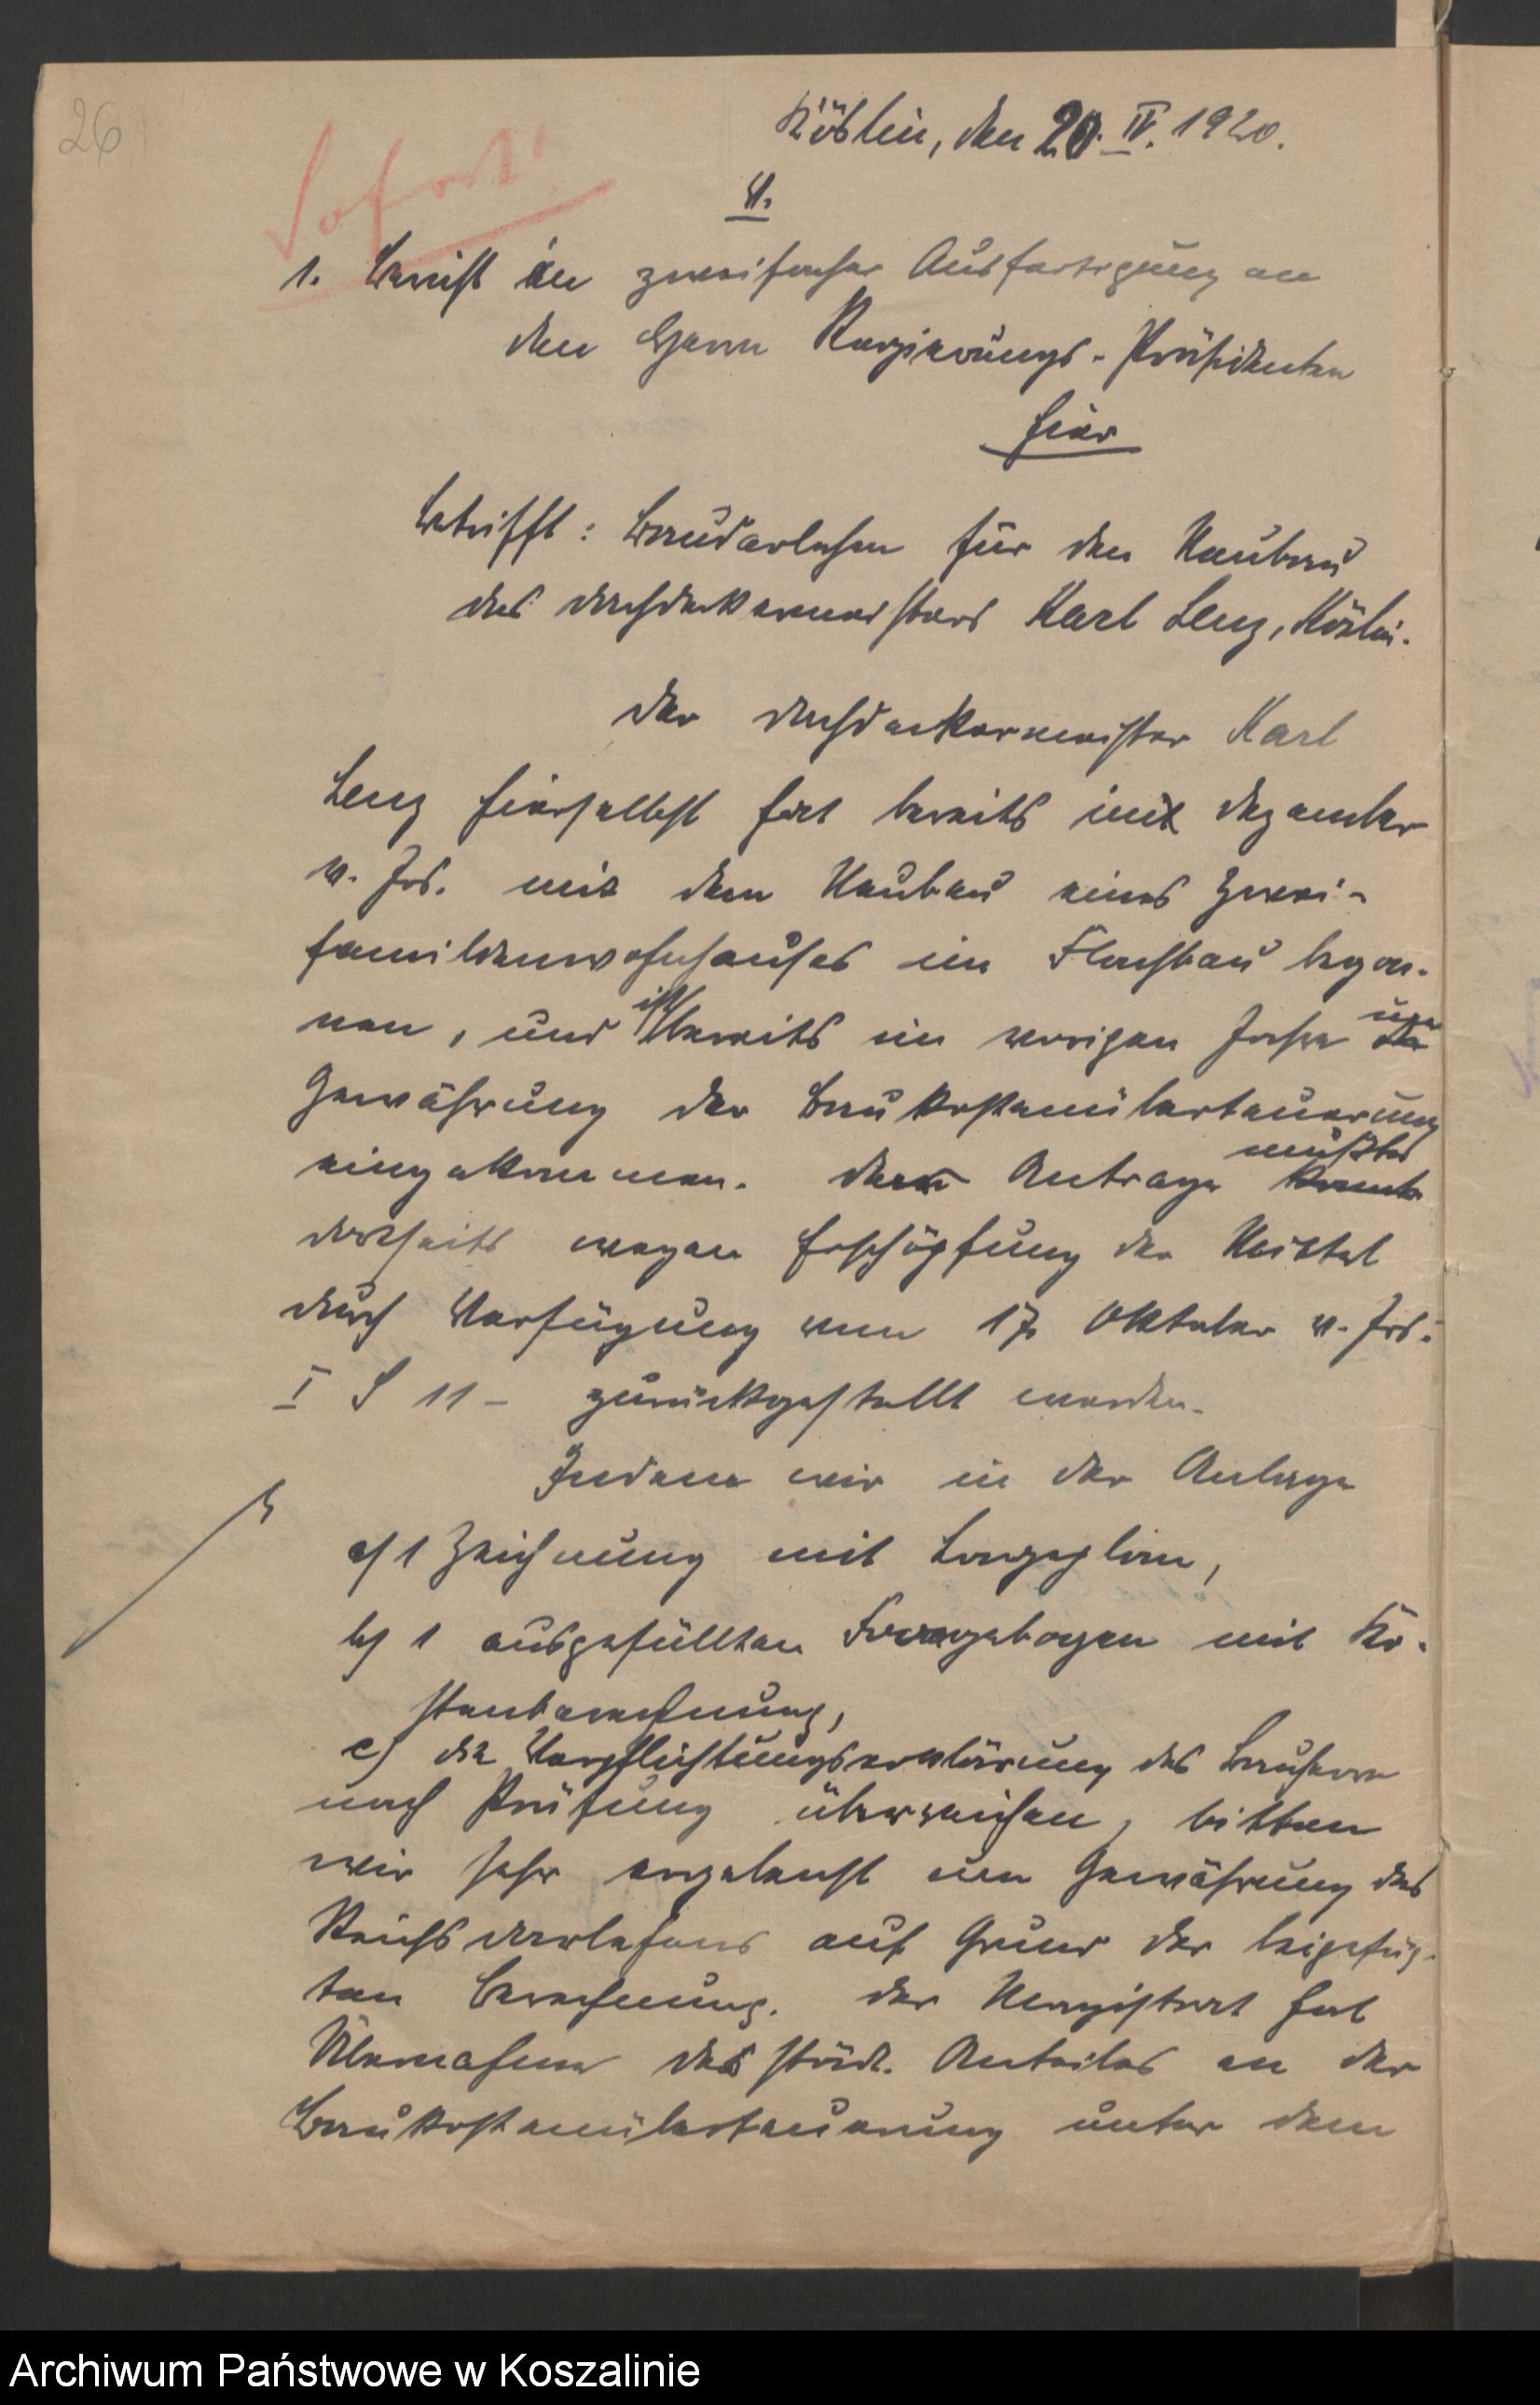 26
Sofort!
Köslin, den 20. IV. 1920.
V.
1. Bericht in zweifacher Ausfertigung an
den Herrn Regierungs-Präsidenten
hier
Betrifft: Baudarlehen für den Neubau
des Dachdeckermeisters Karl Lenz, Köslin.
Der Dachdeckermeister Karl
Lenz hierselbst hat bereits im Dezember
v. Jrs. mit dem Neubau eines Zwei-
familienwohnhauses im Flachbau begon-
nen, und ist bereits im vorigen Jahre um
Gewährung der Baukostenüberteuerung
eingekommen. Der Antrag mußte
derseits wegen Erschöpfung der Mittel
durch Verfügung vom 17. Oktober v. Jrs.
I S 11 - zurückgestellt werden.
Indem wir in der Anlage
a) 1 Zeichnung mit Lageplan,
b) 1 ausgefüllten Fragebogen mit Ko-
stenberechnung,
c) die Verpflichtungserklärung des Bauherrn
nach Prüfung überreichen, bitten
wir sehr ergebenst um Gewährung des
Reichsdarlehens auf Grund der beigefüg-
ten Berechnung. Der Magistrat hat
Übernahme des städt. Anteiles an der
Baukostenüberteuerung unter dem
Archiwum Państwowe w Koszalinie